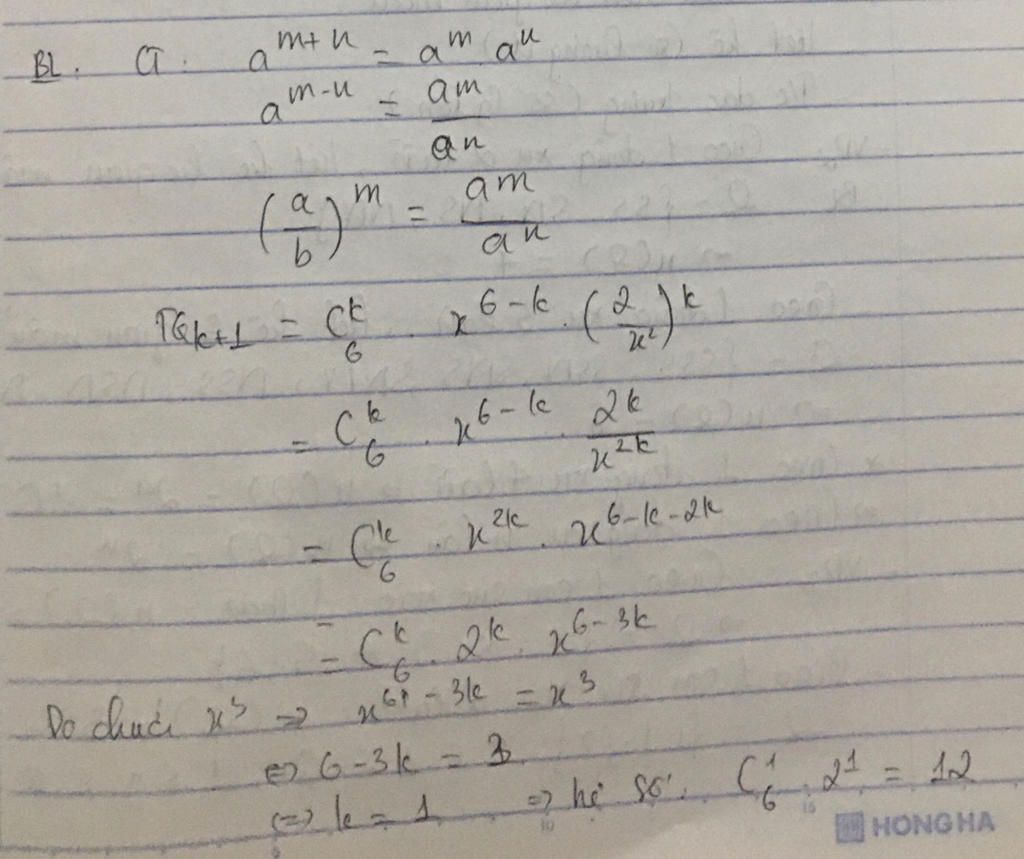 BL. a. a^{m+n} = a^m . a^n
a^{m-n} = \frac{a^m}{a^n}
(\frac{a}{b})^m = \frac{a^m}{a^n}
TQ_{k+1} = C_6^k . x^{6-k} . (\frac{2}{x^2})^k
= C_6^k . x^{6-k} . \frac{2^k}{x^{2k}}
= C_6^k . x^{2k} . x^{6-k-2k}
= C_6^k . 2^k . x^{6-3k}
Do chứa x^3 => x^{6-3k} = x^3
<=> 6-3k = 3
<=> k = 1 => hệ số: C_6^1 . 2^1 = 12
HONG HA